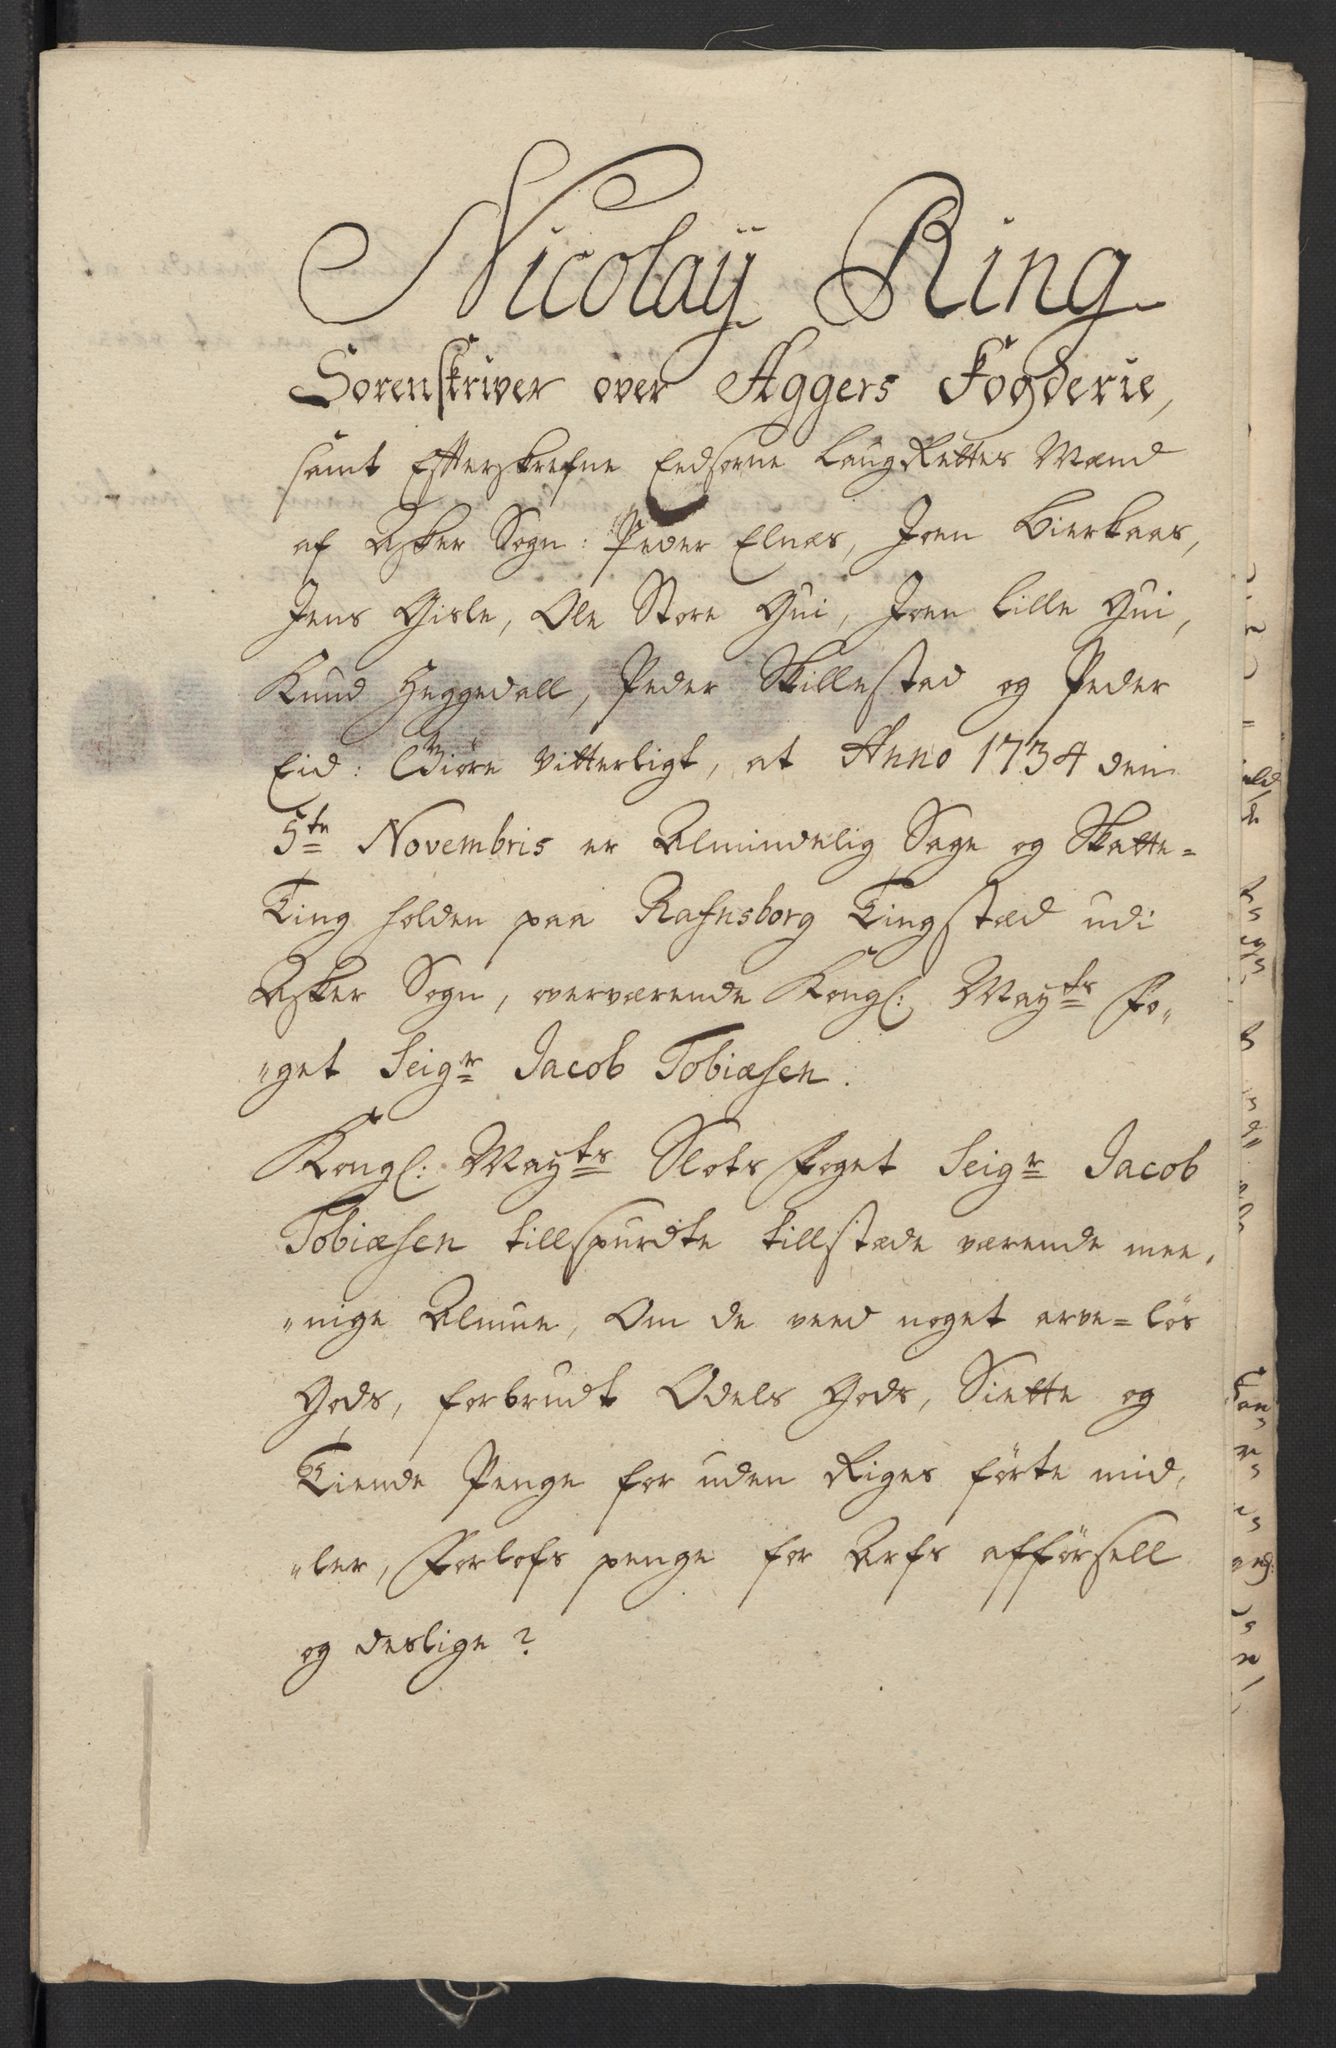 Nicolaÿ Ring
Sorenskriver over Aggers Fogderie,
samt Efterskrefne Eedsorne LaugRettes Mænd
af Asker Sogn: Peder Elnæs, Joen Bierkaas,
Jens Gisle, Ole Store Hui, Joen Lille Hui,
Knud Heggedall, Peder Skillestad og Peder
Eid: Giøre Vitterligt, at Anno 1734 den
5te Novembris er Almindelig Sage og Skatte=
Ting holden paa Rafnsborg Tingstæd udi
Asker Sogn, overværende Kongl: Mayts Fo„
„get Seigr Jacob Tobiæsen.
Kongl: Mayts Slots Foget Seigr Jacob
Tobiæsen tillspurdte tillstæde værende mee„
„nige Almue, Om de veed noget arve=løs
Gods, forbrudt Odels Gods, Siette og
Tiende Penge for uden Riges førte mid„
„ler, Forlofs penge for Arfs afførsell
og deslige?